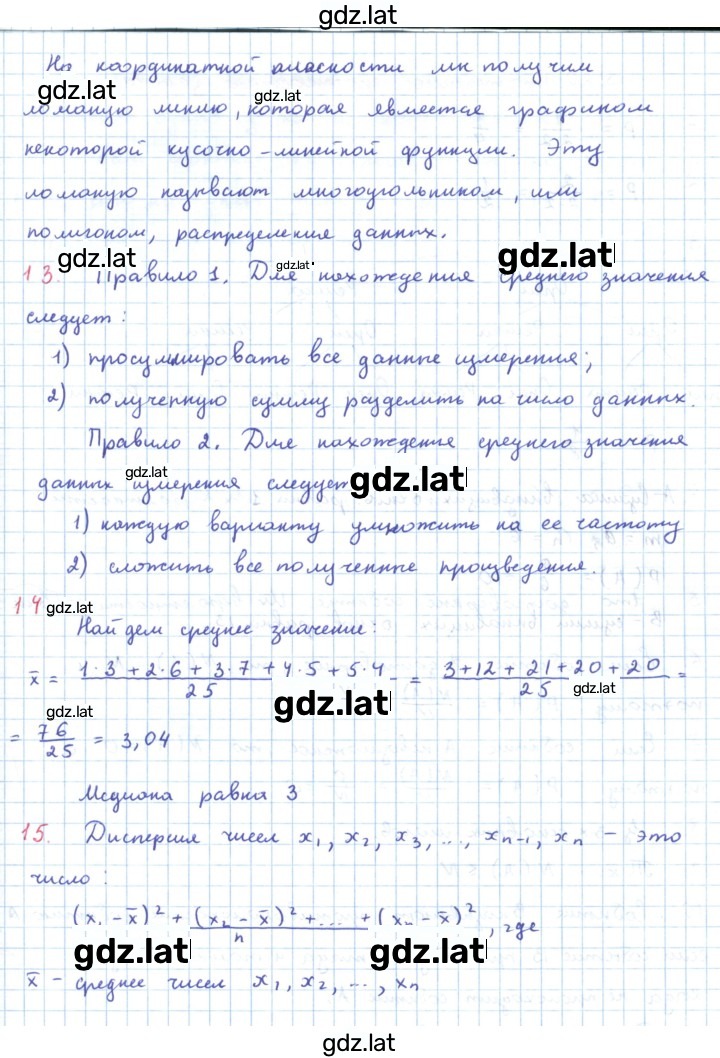 gdz.lat
На координатной плоскости мы получим
gdz.lat gdz.lat
ломаную линию, которая является графиком
некоторой кусочно-линейной функции. Эту
ломаную называют многоугольником, или
полигоном, распределения данных.
gdz.lat gdz.lat gdz.lat
13. Правило 1. Для нахождения среднего значения
следует:
1) просуммировать все данные измерения;
2) полученную сумму разделить на число данных.
Правило 2. Для нахождение среднего значения
gdz.lat gdz.lat
данных измерения следует
1) каждую варианту умножить на ее частоту
2) сложить все полученные произведения.
14 gdz.lat
Найдем среднее значение:
x̄ = (1·3 + 2·6 + 3·7 + 4·5 + 5·4)/25 = (3+12+21+20+20)/25 =
gdz.lat gdz.lat gdz.lat
= 76/25 = 3,04
Медиана равна 3
15. Дисперсия чисел x₁, x₂, x₃, ..., xₙ₋₁, xₙ – это
число:
((x₁ - x̄)² + (x₂ - x̄)² + ... + (xₙ - x̄)²)/n, где
gdz.lat gdz.lat
x̄ - среднее чисел x₁, x₂, ..., xₙ
gdz.lat